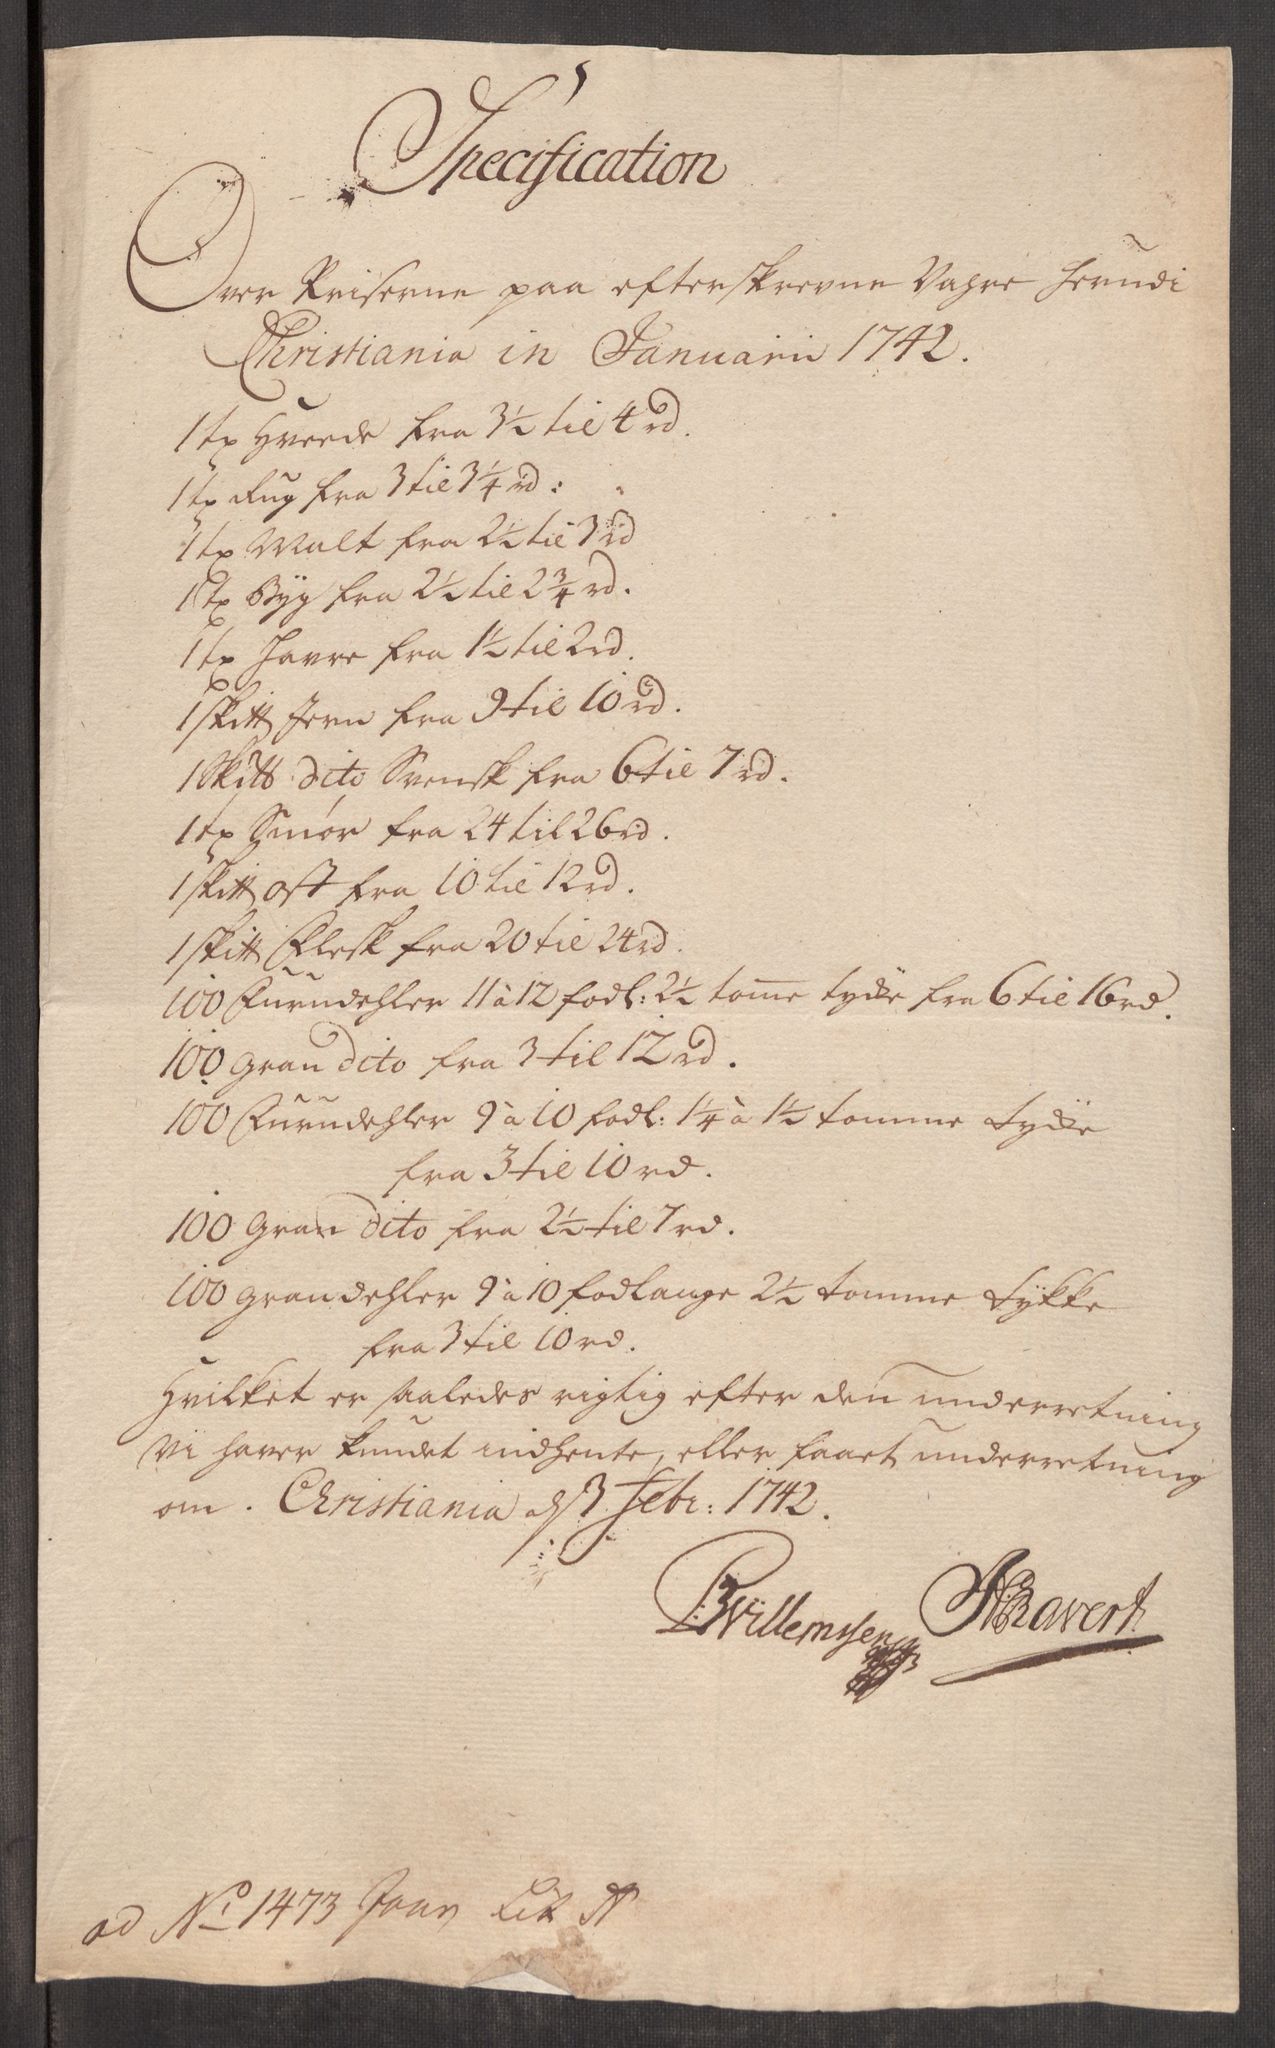 Specification
Over Priserne paa efterskrevne Vahre herudi
Christiania in Januarii 1742.
1 tø Hveede fra 3½ til 4 rd.
1 tø Rug fra 3 til 3¼ rd:
1 tø Malt fra 2½ til 3 rd
1 tø Byg fra 2½ til 2¾ rd.
1 tø Havre fra 1½ til 2 rd.
1 skitt Jern fra 9 til 10 rd.
1 Skitt dito Svensk fra 6 til 7 rd.
1 tø Smør fra 24 til 26 rd.
1 skitt ost fra 10 til 12 rd.
1 skitt Flesk fra 20 til 24 rd.
100 Furudehler 11 à 12 fodl: 2½ tome tycke fra 6 til 16 rd.
100 gran dito fra 3 til 12 rd.
100 Furudehler 9 à 10 fodl: 1¼ à 1½ tomme tycke
fra 3 til 10 rd.
100 gran dito fra 2½ til 7 rd.
100 grandehler 9 à 10 fodlange 2½ tomme tykke
fra 3 til 10 rd.
Hvilket er saaledes rigtig efter den underretning
vi haver kundet indhente, eller faaet underretning
om. Christiania d 3 Febr: 1742.
BWillemssen NBavert
ad No 1473 Jan Lit N